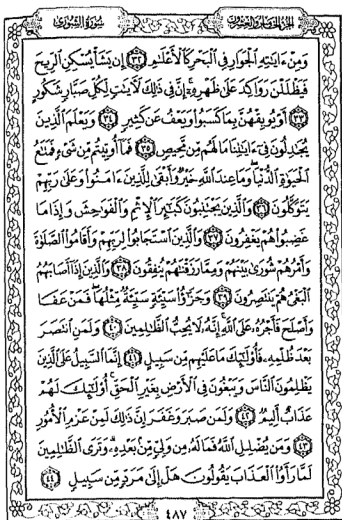 الجزء الخامس والعشرون سورة الشورى
ومن ءايته الجوار في البحر كالأعلم ٣٢ إن يشأ يسكن الريح
فيظللن رواكد على ظهره إن في ذلك لأيت لكل صبار شكور
٣٣ أو يوبقهن بما كسبوا ويعف عن كثير ٣٤ ويعلم الذين
يجدلون في ءايتنا ما لهم من محيص ٣٥ فما أوتيتم من شيء فمتع
الحيوة الدنيا وما عند الله خير وأبقى للذين ءامنوا وعلى ربهم
يتوكلون ٣٦ والذين يجتنبون كبئر الإثم والفوحش وإذا ما
غضبوا هم يغفرون ٣٧ والذين استجابوا لربهم وأقاموا الصلوة
وأمرهم شورى بينهم ومما رزقنهم ينفقون ٣٨ والذين إذا أصابهم
البغي هم ينتصرون ٣٩ وجزؤا سيئة سيئة مثلها فمن عفا
وأصلح فأجره على الله إنه لا يحب الظلمين ٤٠ ولمن انتصر
بعد ظلمه فأولئك ما عليهم من سبيل ٤١ إنما السبيل على الذين
يظلمون الناس ويبغون في الأرض بغير الحق أولئك لهم
عذاب أليم ٤٢ ولمن صبر وغفر إن ذلك لمن عزم الأمور
٤٣ ومن يضلل الله فما له من ولي من بعده وترى الظلمين
لما رأوا العذاب يقولون هل إلى مرد من سبيل ٤٤
٤٨٧